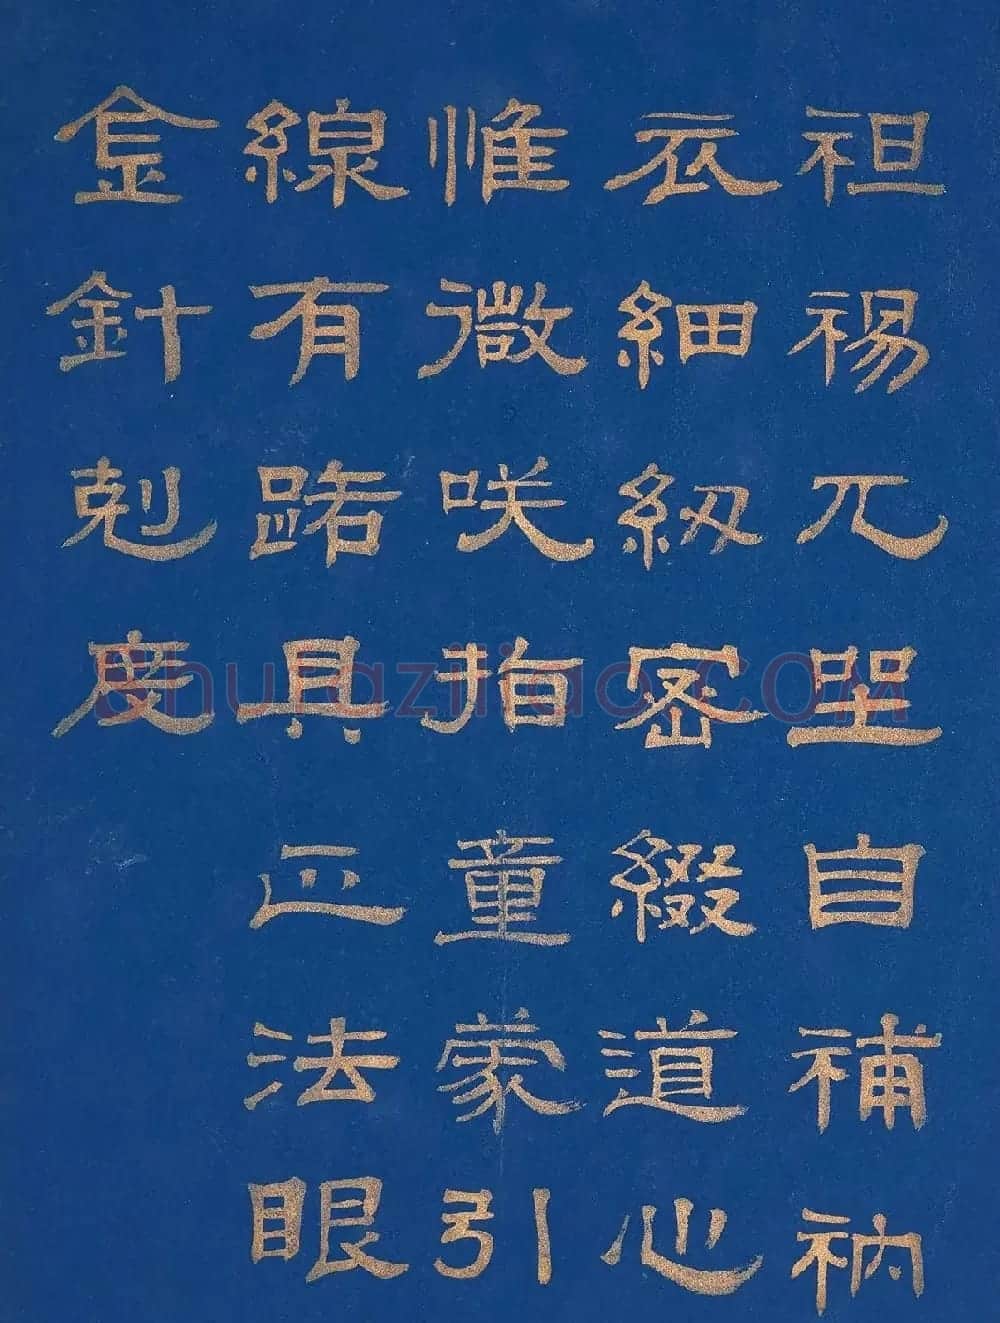 袒裼兀坐自補衲
衣細紉密綴道心
惟微咲指童蒙引
線有路具正法眼
金針剋度
shufaziliao.COM